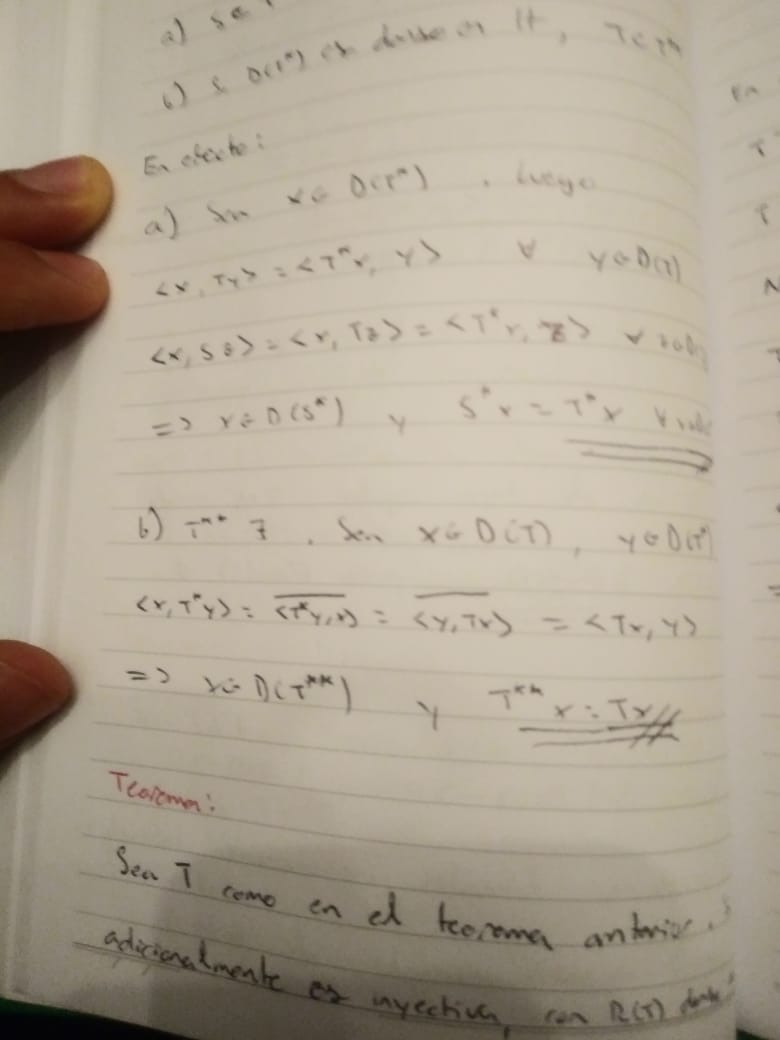 a) Se
b) S D(T*) es denso en H, T ⊂ T**
En efecto:
a) Sea x ∈ D(T*) . Luego
<x, Ty> = <T*x, y> ∀ y ∈ D(T)
<x, Sz> = <x, Tz> = <T*x, z> ∀ z ∈ D(
=> x ∈ D(S*) y S*x = T*x ∀ x
b) T** ∃ . Sea x ∈ D(T), y ∈ D(T*)
<x, T*y> = \overline{<T*y, x>} = \overline{<y, Tx>} = <Tx, y>
=> x ∈ D(T**) y T**x = Tx //
Teorema:
Sea T como en el teorema anterior. S
adicionalmente es inyectiva, con R(T) denso
En
T
T
N
T
=